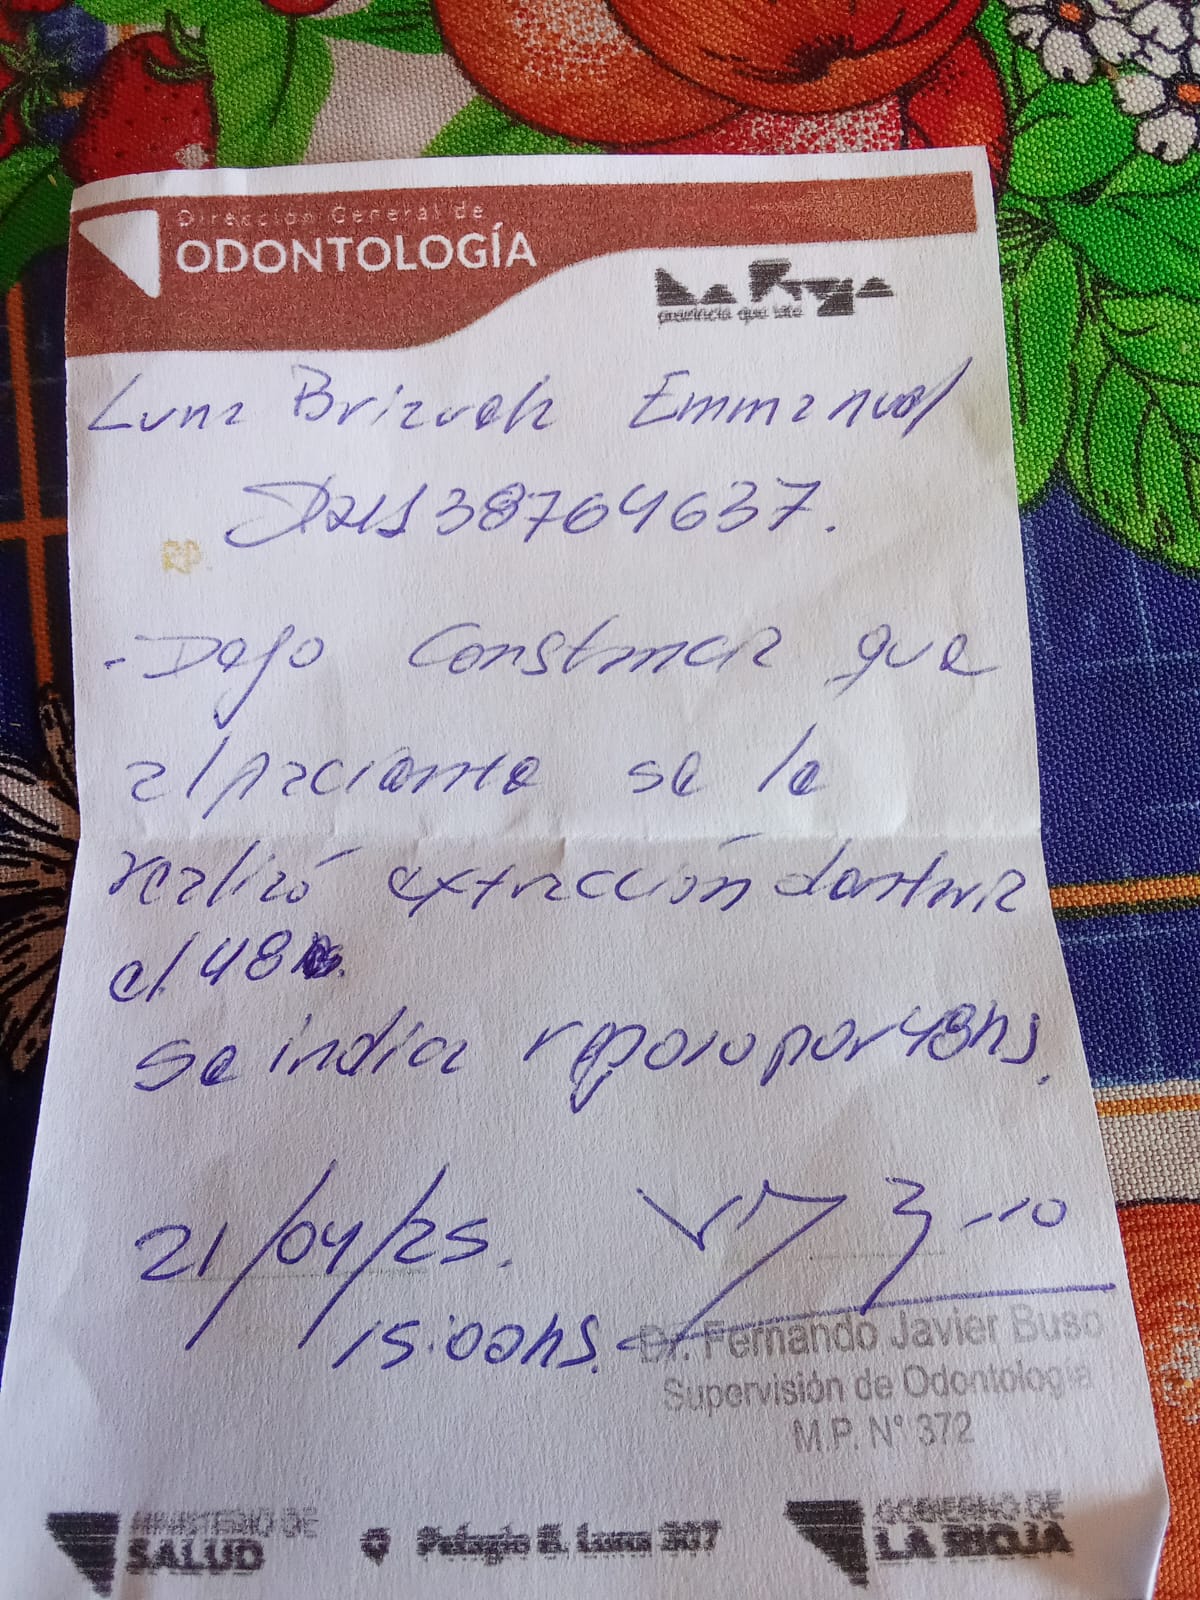 Dirección General de
ODONTOLOGÍA
La Rioja
provincia que late
Luna Brizuela Emmanuel
DNI 38764637.
RP.
- Dejo constancia que
al paciente se le
realizó extracción dentaria
el 48
Se indica reposo por 48hs.
21/04/25.
15:00hs.
Dr. Fernando Javier Buso
Supervisión de Odontología
M.P. N° 372
MINISTERIO DE
SALUD
Pelagio B. Luna 307
GOBIERNO DE
LA RIOJA